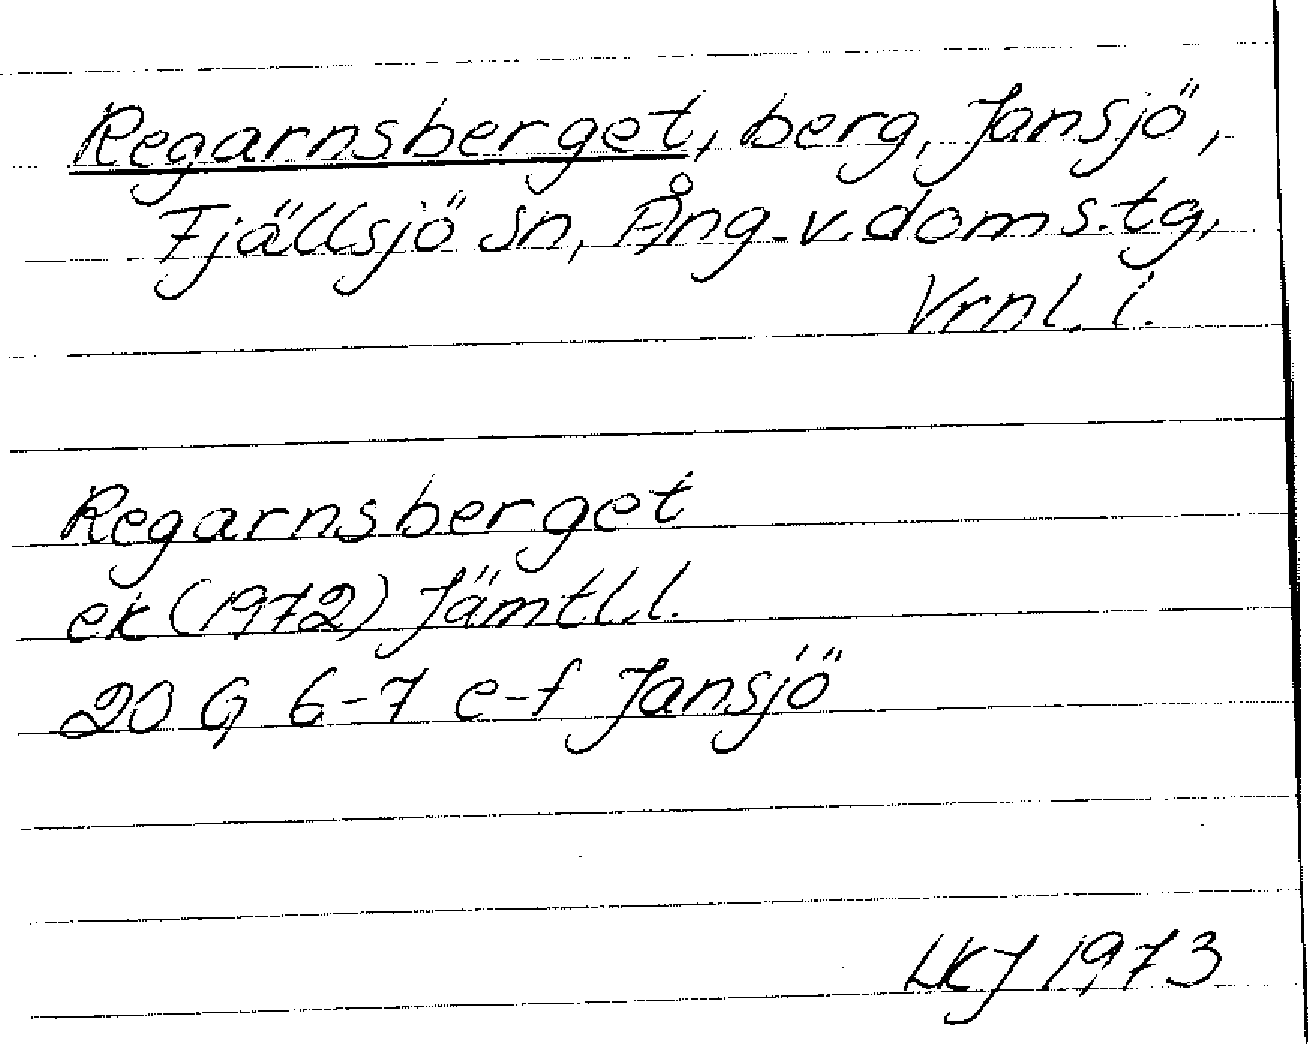 Regarnsberget, berg, Jansjö,
Fjällsjö sn, Ång. v. doms.tg,
Vrnl. l.
Regarnsberget
ek (1972) Jämtl.l.
20 G 6-7 e-f Jansjö
LKJ 1973